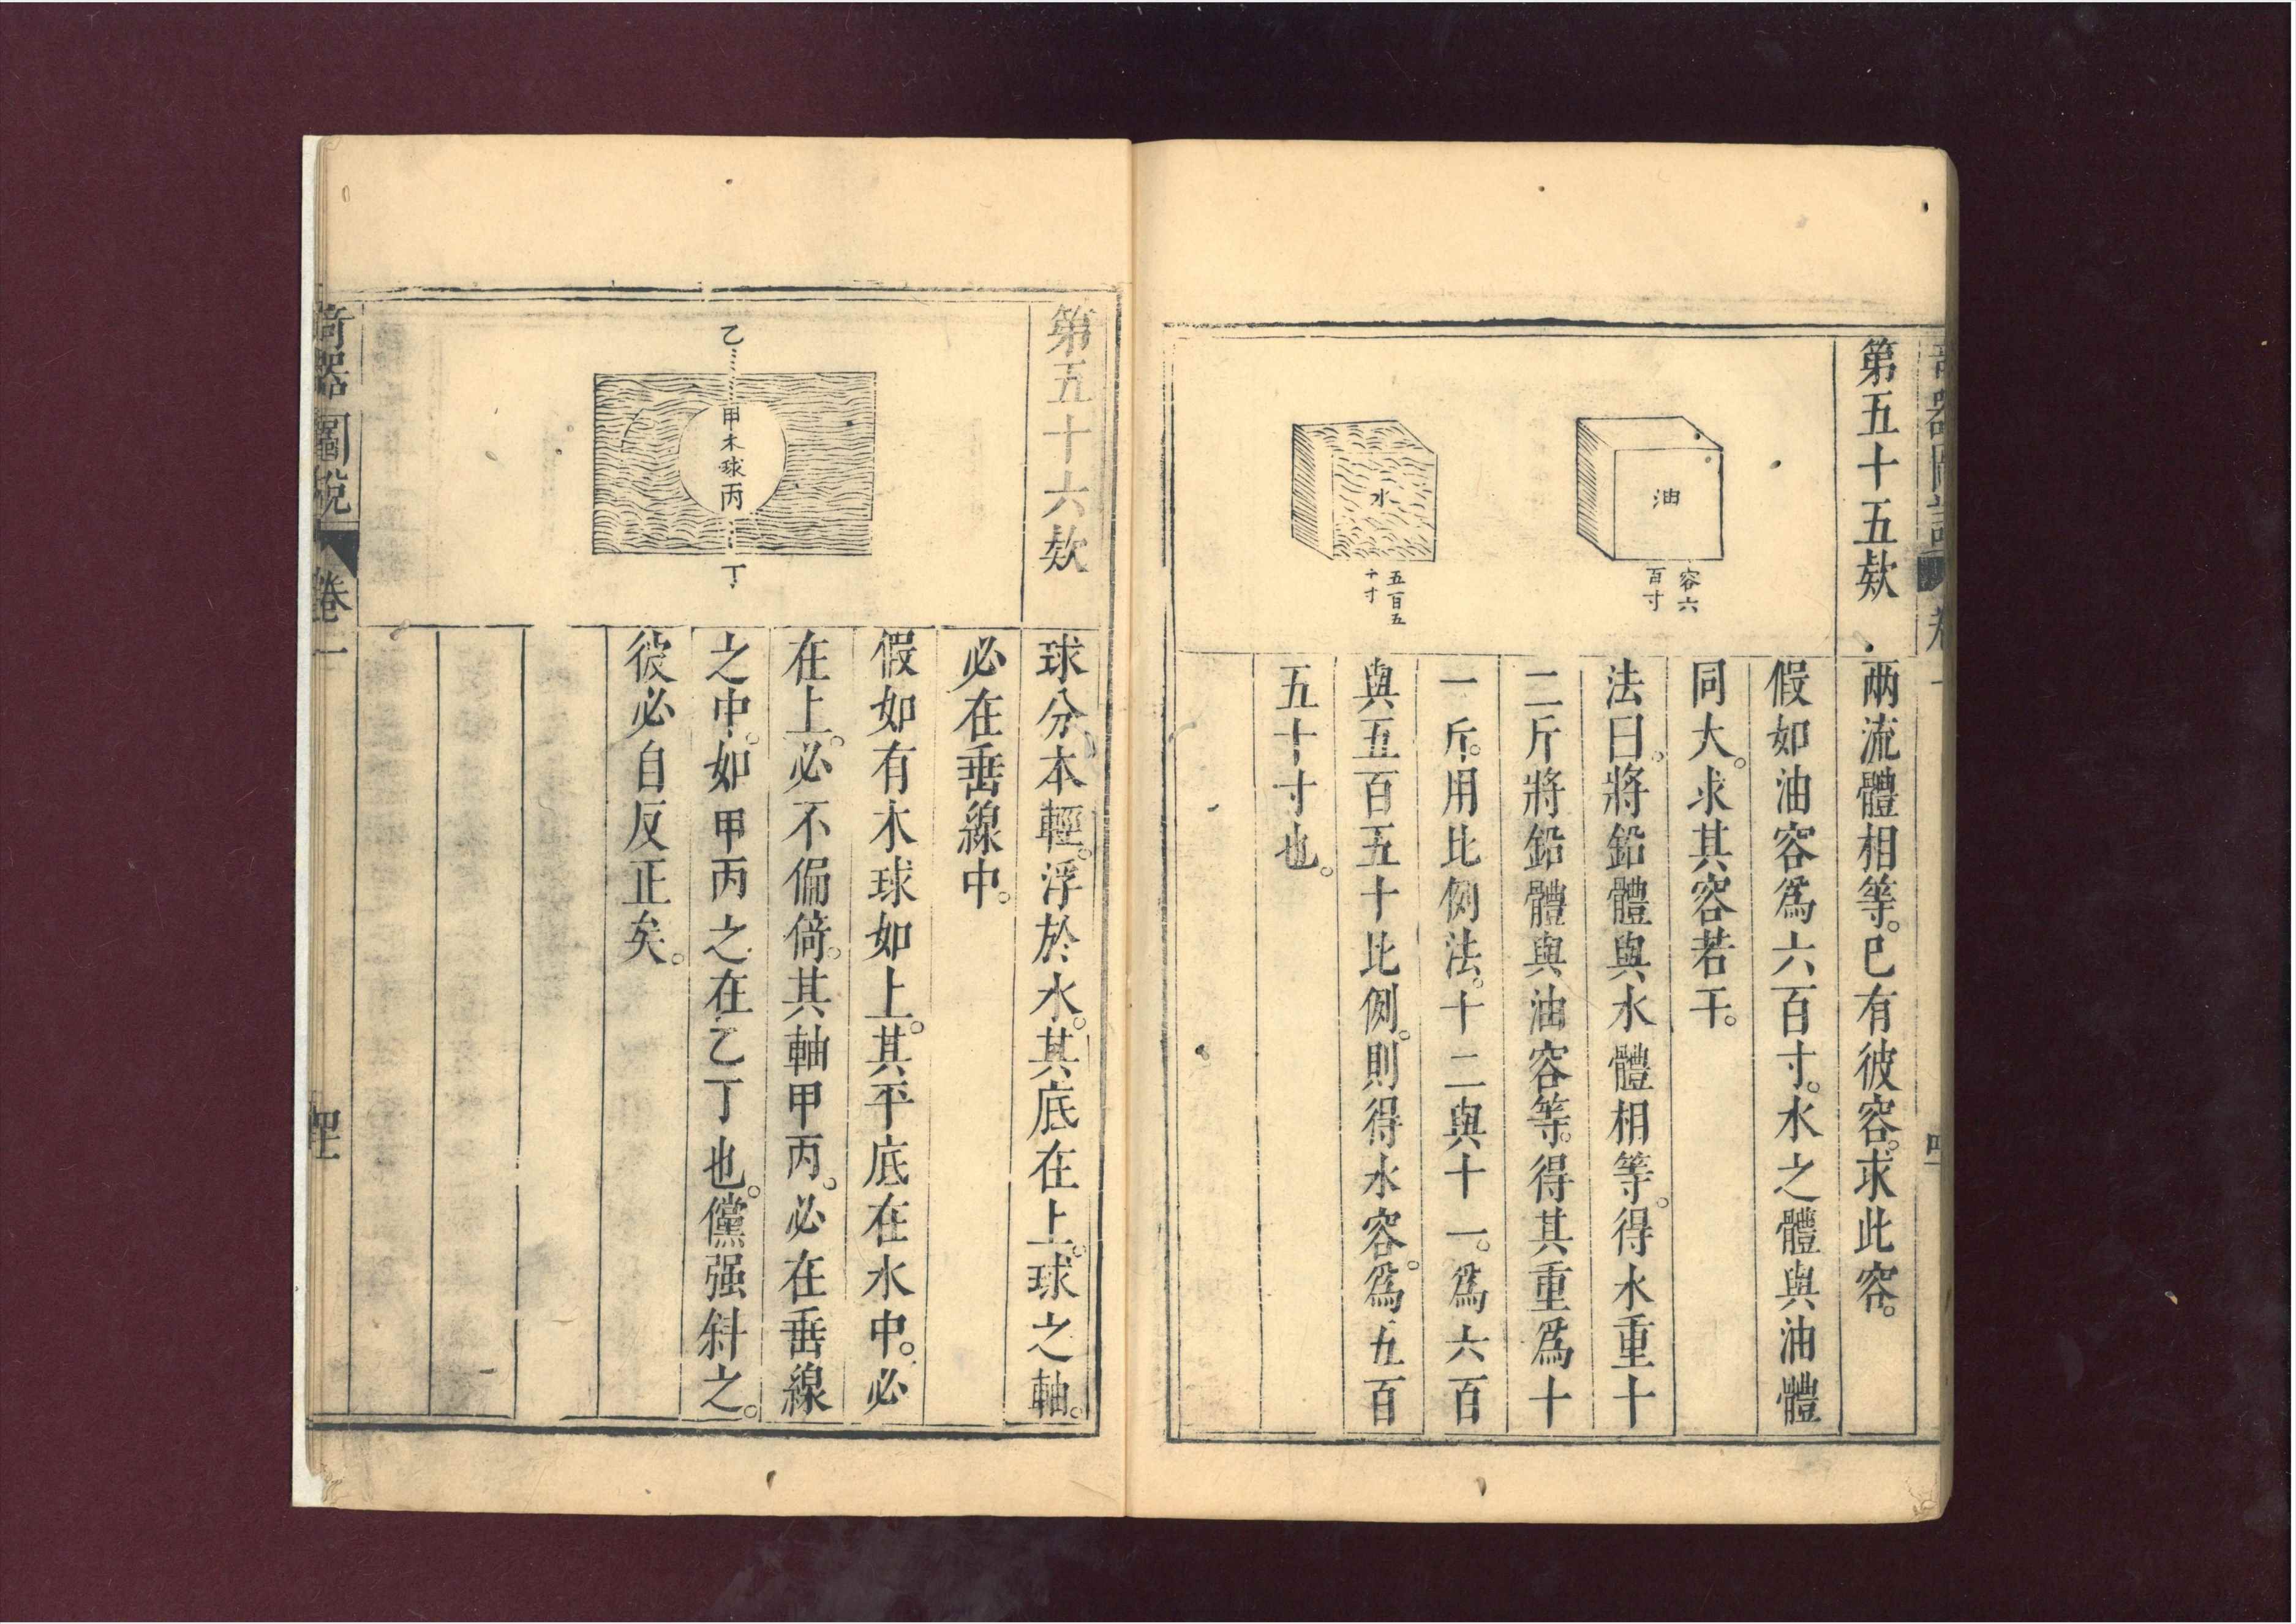 第五十五欵
油
容六
百寸
水
五百五
十寸
兩流體相等。已有彼容。求此容。
假如油容爲六百寸。水之體與油體
同大。求其容若干。
法曰。將鉛體與水體相等。得水重十
二斤將鉛體與油容等。得其重爲十
一斤。用比例法。十二與十一。爲六百
與五百五十比例。則得水容。爲五百
五十寸也。
第五十六欵
乙
甲木球丙
丁
球分本輕。浮於水。其底在上。球之軸。
必在垂線中。
假如有木球如上。其平底在水中。必
在上。必不偏倚。其軸甲丙。必在垂線
之中。如甲丙之在乙丁也。儻强斜之。
彼必自反正矣。
奇器圖說
卷一